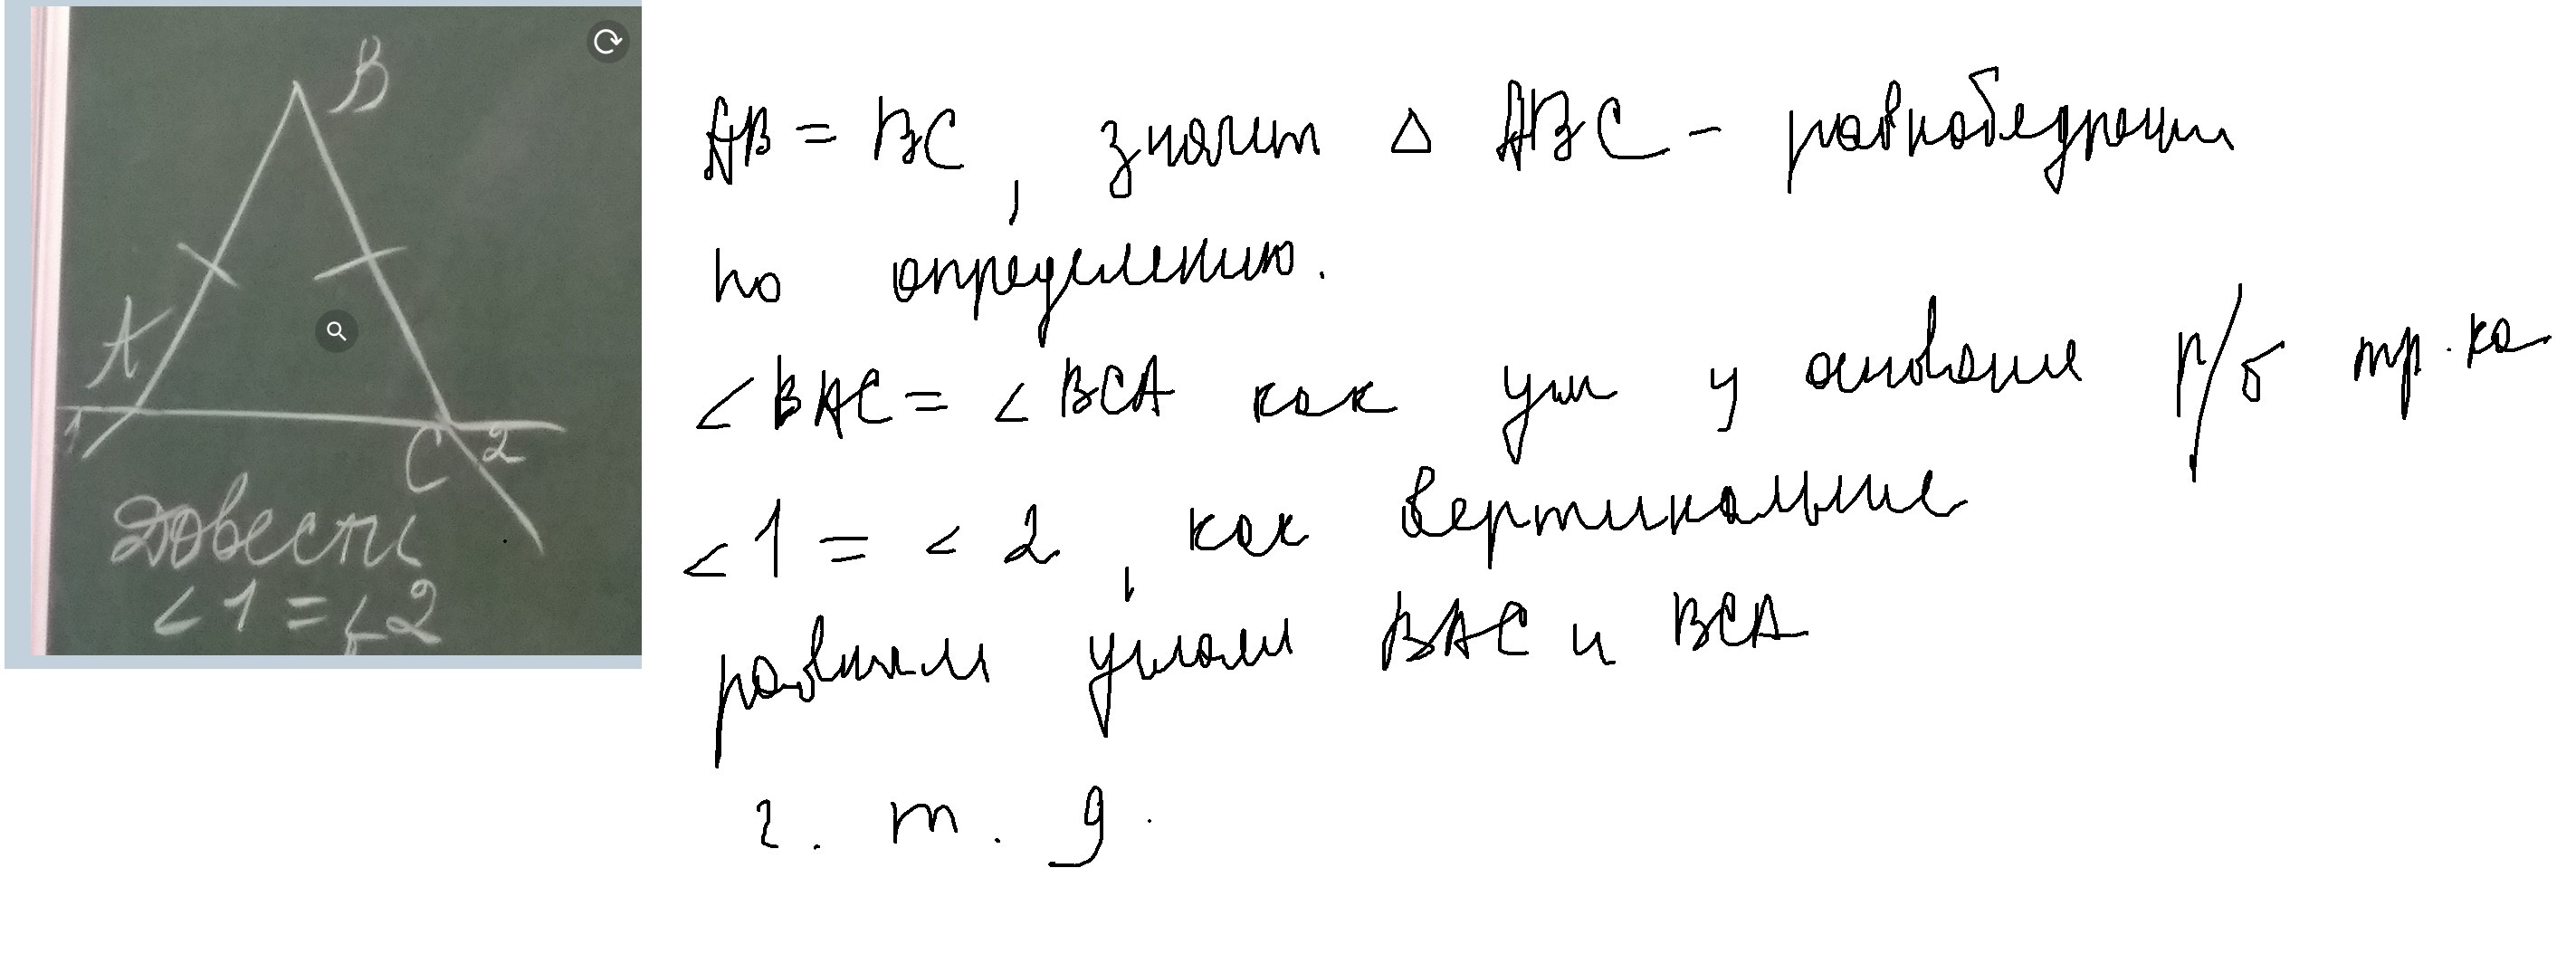 B
A
1
C 2
Довести
∠1 = ∠2
AB = BC, значит △ ABC - равнобедрени
по определению.
∠BAC = ∠BCA как угли у основание р/б тр.ка
∠1 = ∠2, как вертикальные
равным углам BAC и BCA
ч. т. д.